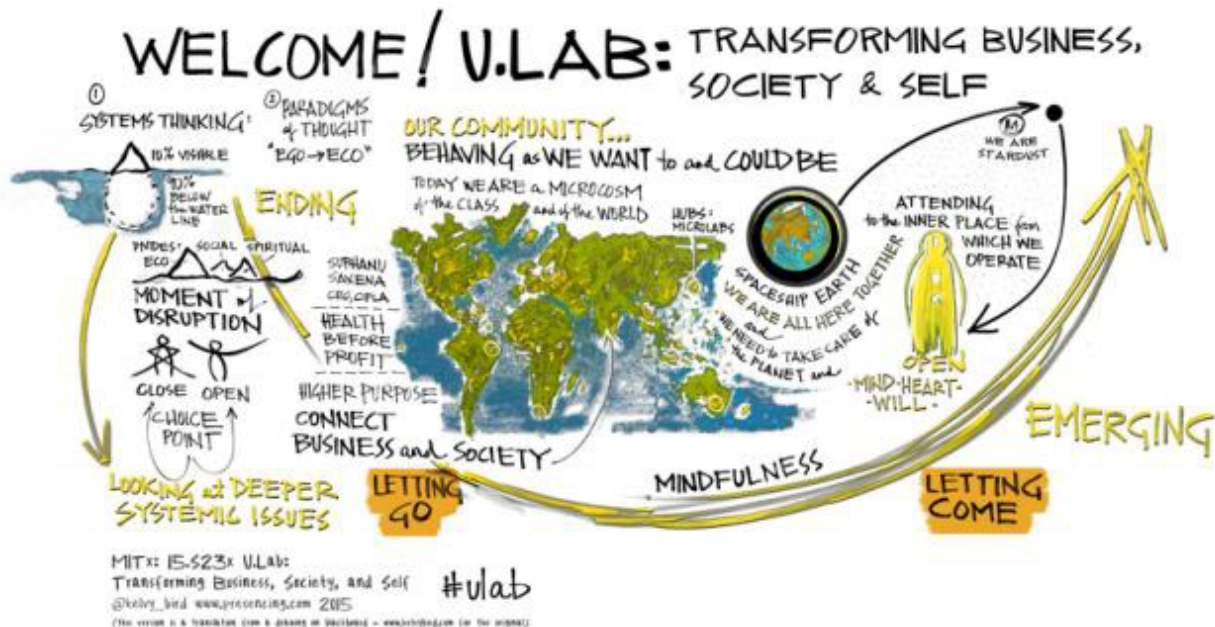 WELCOME! U.LAB: TRANSFORMING BUSINESS,
SOCIETY & SELF
①
SYSTEMS THINKING:
10% VISIBLE
90%
BELOW
the WATER
LINE
② PARADIGMS
of THOUGHT
"EGO → ECO"
ENDING
SOCIAL
SPIRITUAL
ECO
MOMENT of
DISRUPTION
CLOSE
OPEN
CHOICE
POINT
LOOKING at DEEPER
SYSTEMIC ISSUES
OUR COMMUNITY...
BEHAVING as WE WANT to and COULD BE
TODAY WE ARE a MICROCOSM
of the CLASS and of the WORLD
HUBS:
MICROLABS
HEALTH
BEFORE
PROFIT
HIGHER PURPOSE
CONNECT
BUSINESS and SOCIETY
LETTING
GO
MINDFULNESS
LETTING
COME
EMERGING
SPACESHIP EARTH
WE ARE ALL HERE TOGETHER
and
WE NEED to TAKE CARE of
the PLANET and
WE ARE
STARDUST
ATTENDING
to the INNER PLACE from
WHICH WE
OPERATE
OPEN
-MIND-HEART-
WILL-
MITx: 15.S23x U.Lab:
Transforming Business, Society, and Self
@kelvy_bird www.presencing.com 2015
#ulab